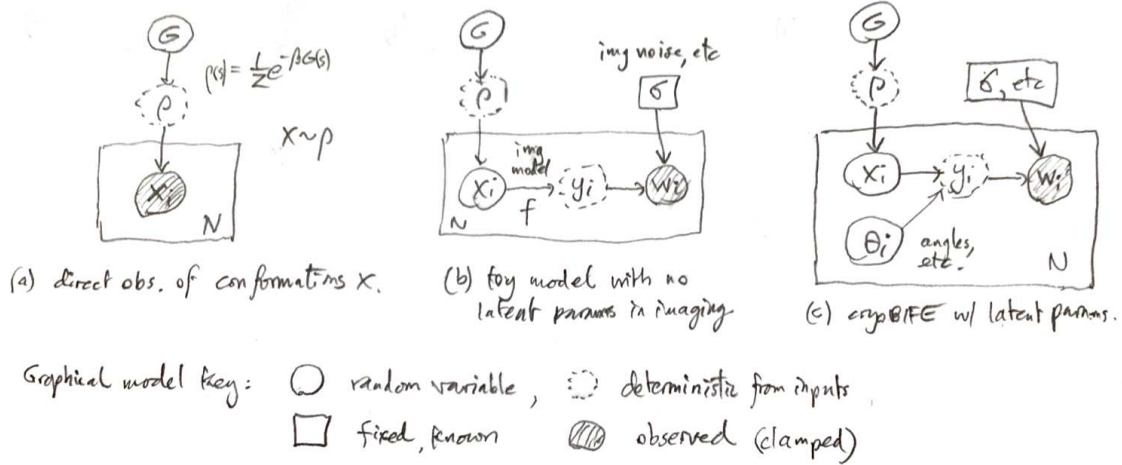 G
ρ
ρ(s) = 1/Z e^-βG(s)
x~ρ
xi
N
(a) direct obs. of conformations x.
G
ρ
img noise, etc
σ
img
model
xi
f
yi
wi
N
(b) toy model with no
latent params in imaging
G
ρ
σ, etc
xi
yi
wi
θi
angles,
etc.
N
(c) cryoBIFE w/ latent params.
Graphical model key: random variable, deterministic from inputs
fixed, known observed (clamped)